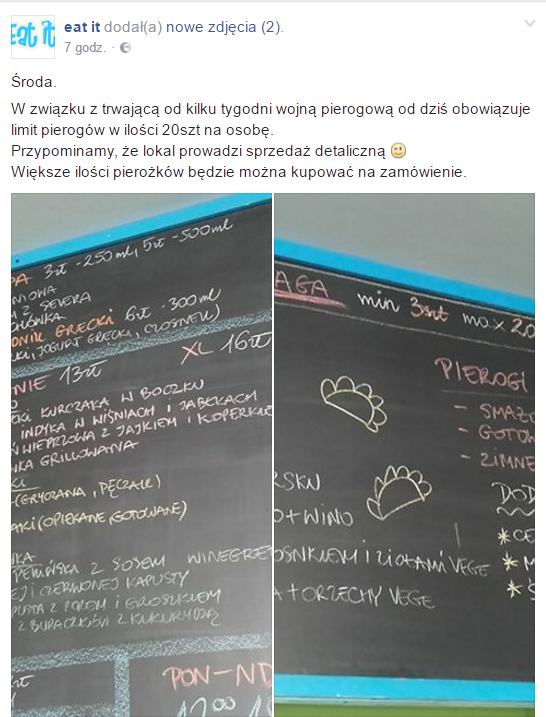 Eat it
eat it dodał(a) nowe zdjęcia (2).
7 godz. ·
Środa.
W związku z trwającą od kilku tygodni wojną pierogową od dziś obowiązuje
limit pierogów w ilości 20szt na osobę.
Przypominamy, że lokal prowadzi sprzedaż detaliczną
Większe ilości pierożków będzie można kupować na zamówienie.
PA 3zł -250ml, 5zł -500ml
MOWA
Z SELERA
GRECKI 6zł -300ml
JOGURT GRECKI, CZOSNEK)
XL 16zł
NIE 13zł
KI KURCZAKA W BOCZKU
INDYKA W WIŚNIACH I JABŁKACH
WIEPRZOWA Z JAJKIEM I KOPERKIE
KA GRILLOWANA
(GRYCZANA, PĘCZAK)
AKI (OPIEKANE, GOTOWANE)
KA
PEKIŃSKA Z SOSEM WINEGRE
EJ I CZERWONEJ KAPUSTY
PUSTA Z POREM I GROSZKIEM
Z BURACZKÓW Z KUKURYDZĄ
PON-ND
12⁰⁰
AGA min 3szt max 20
PIEROGI
- SMAŻO
- GOTOW
- ZIMNE
RSKU
O+WINO
OSNKIEM I ZIOŁAMI VEGE
A+ORZECHY VEGE
DOD
* CE
* M
* S